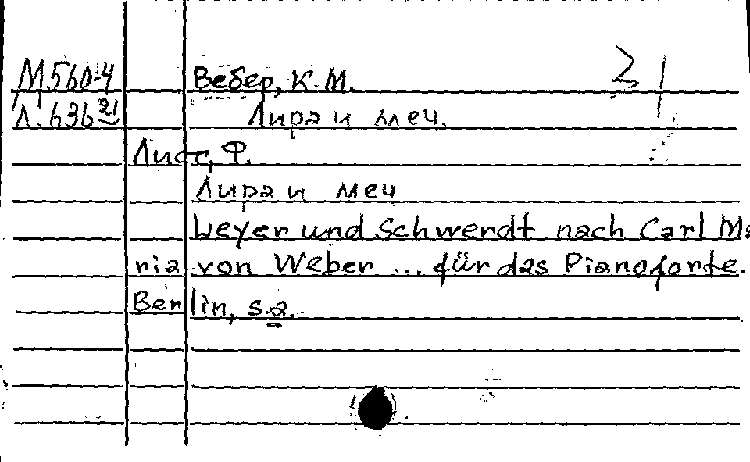 М560-4 Вебер, К.М. 21
Л.636 21 Лира и меч.
Лист, Ф.
Лира и меч
Leyer und Schwerdt nach Carl Ma
ria von Weber ... für das Pianoforte.
Berlin, s.a.